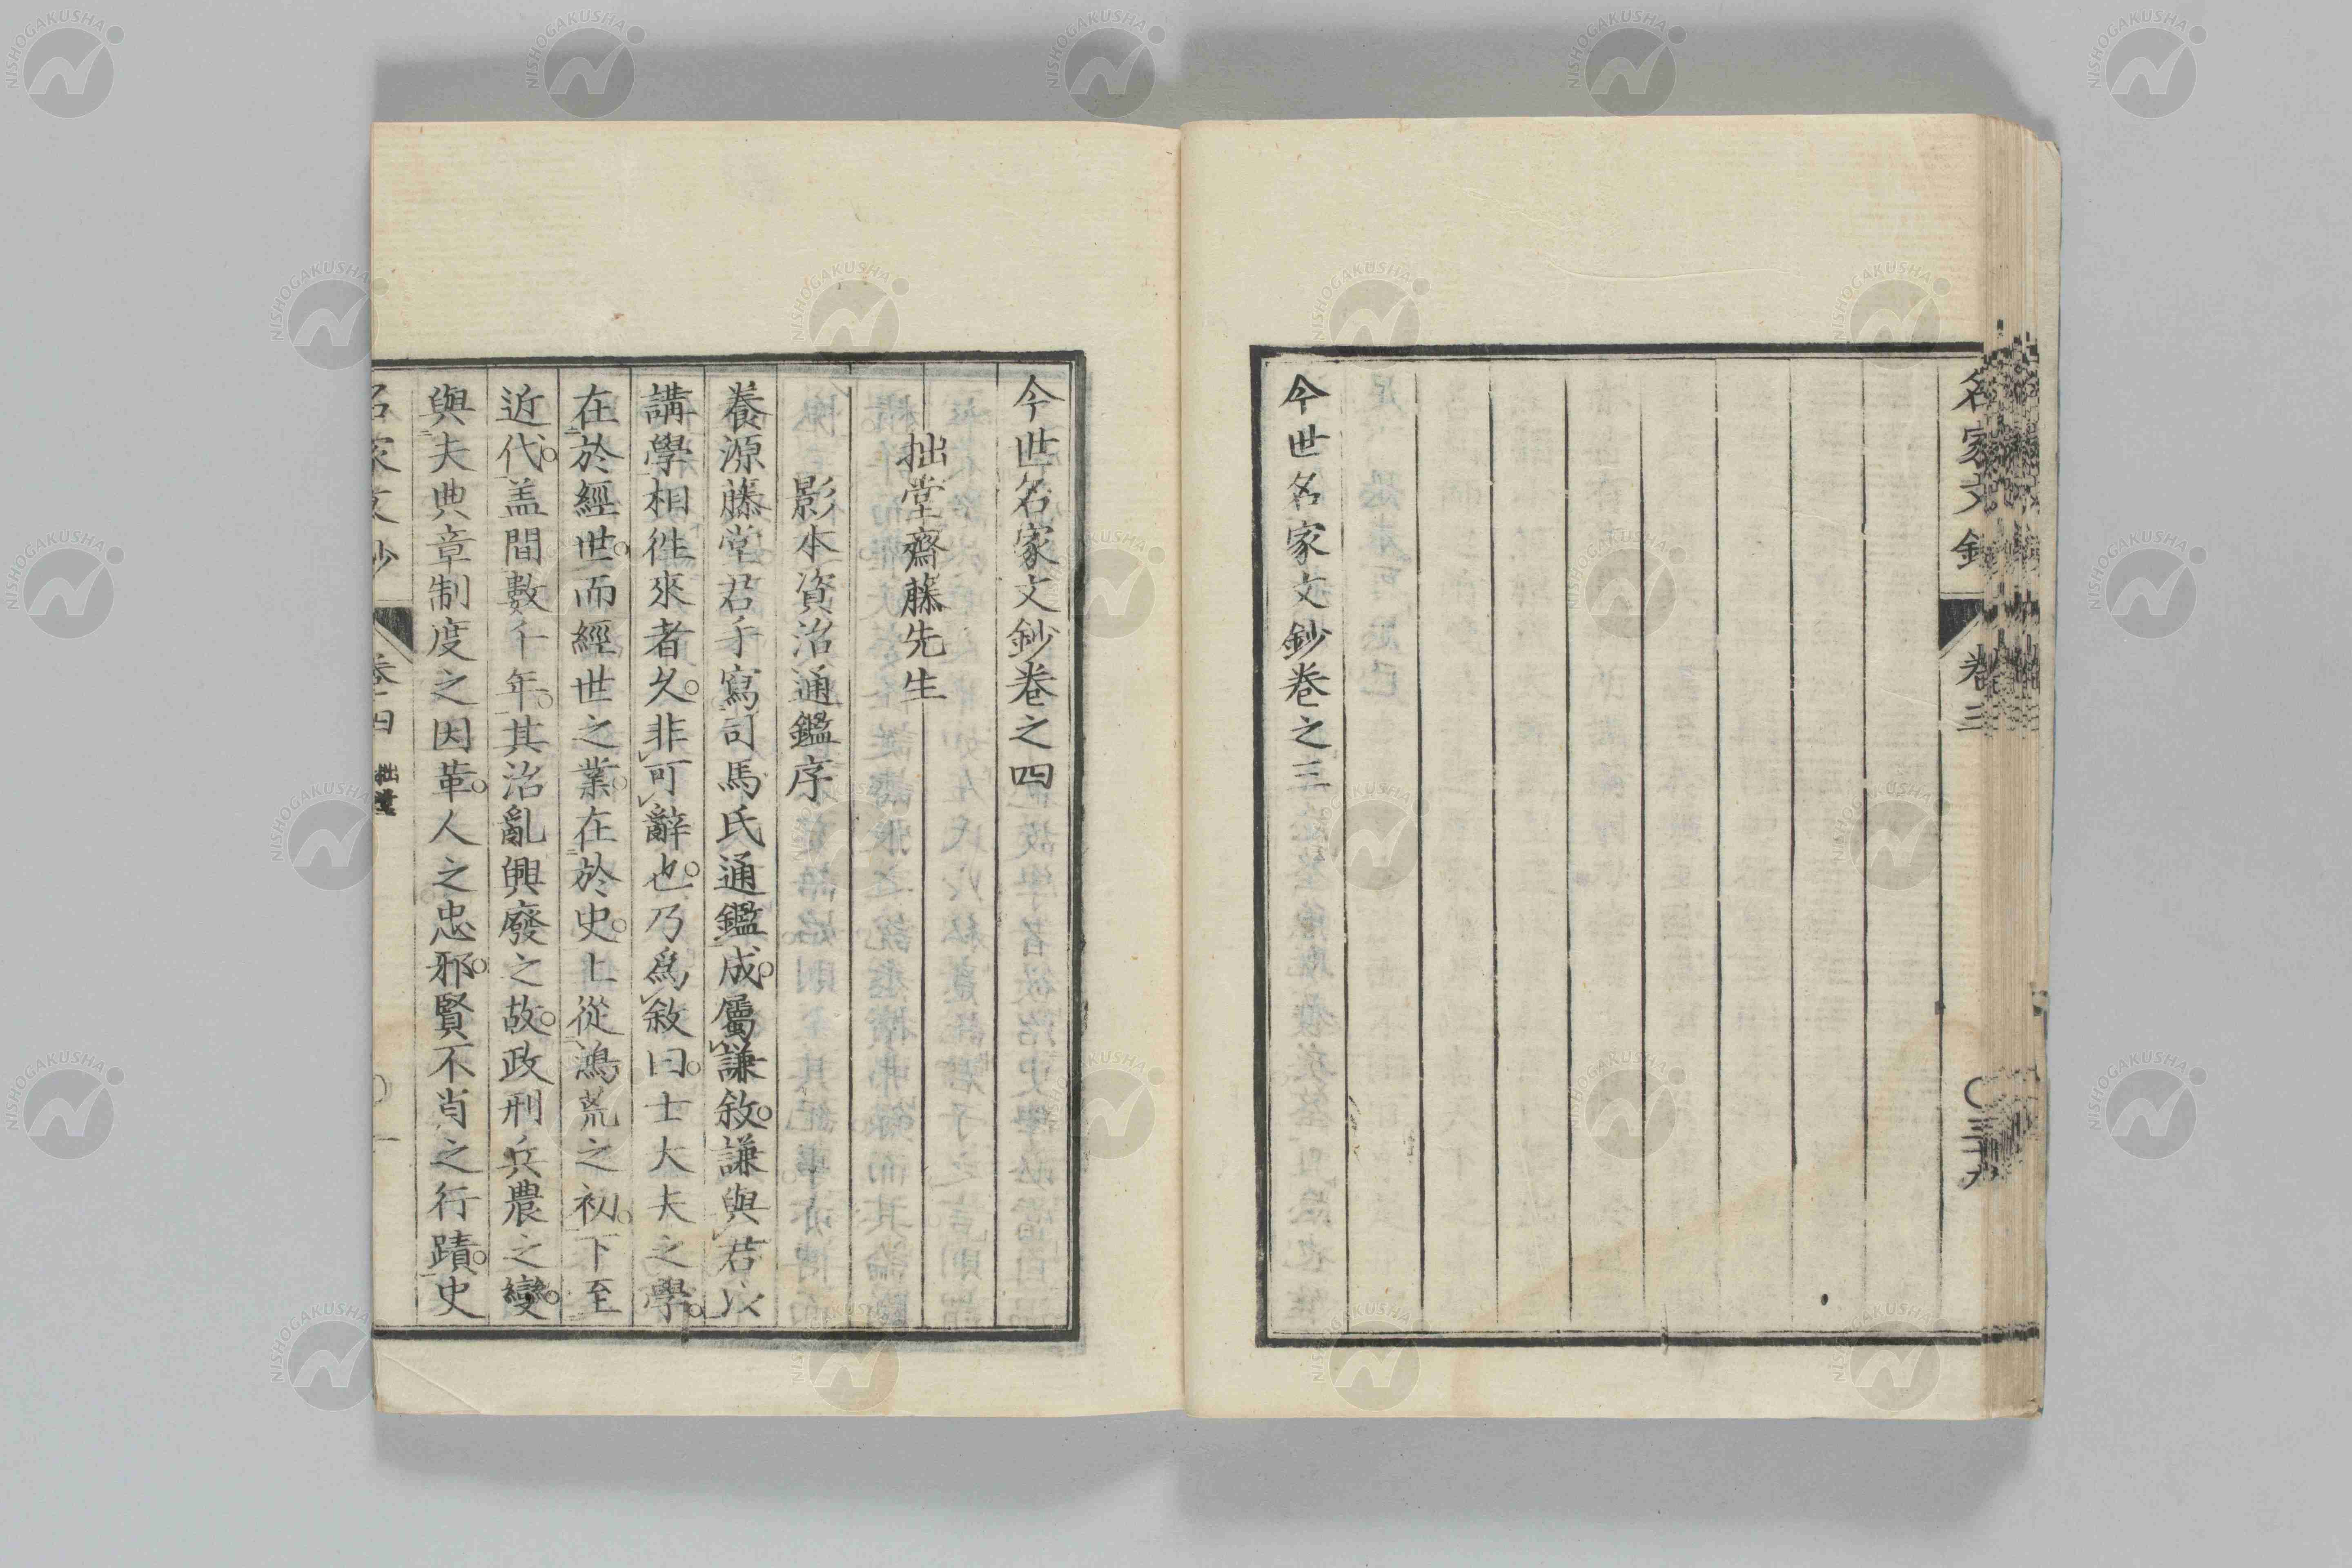 名家文鈔 卷三 〇三十九
今世名家文鈔卷之三
今世名家文鈔卷之四
拙堂齋藤先生
影本資治通鑑序
養源藤堂君手寫司馬氏通鑑成。屬謙敘。謙與君以
講學相徃來者久。非可辭也。乃爲敘曰。士大夫之學。
在於經世。而經世之業。在於史。上從鴻荒之初。下至
近代。盖間數千年。其治亂興廢之故。政刑兵農之變。
與夫典章制度之因革。人之忠邪。賢不肖之行蹟。史
名家文鈔 卷四 拙堂 〇一
NISHOGAKUSHA